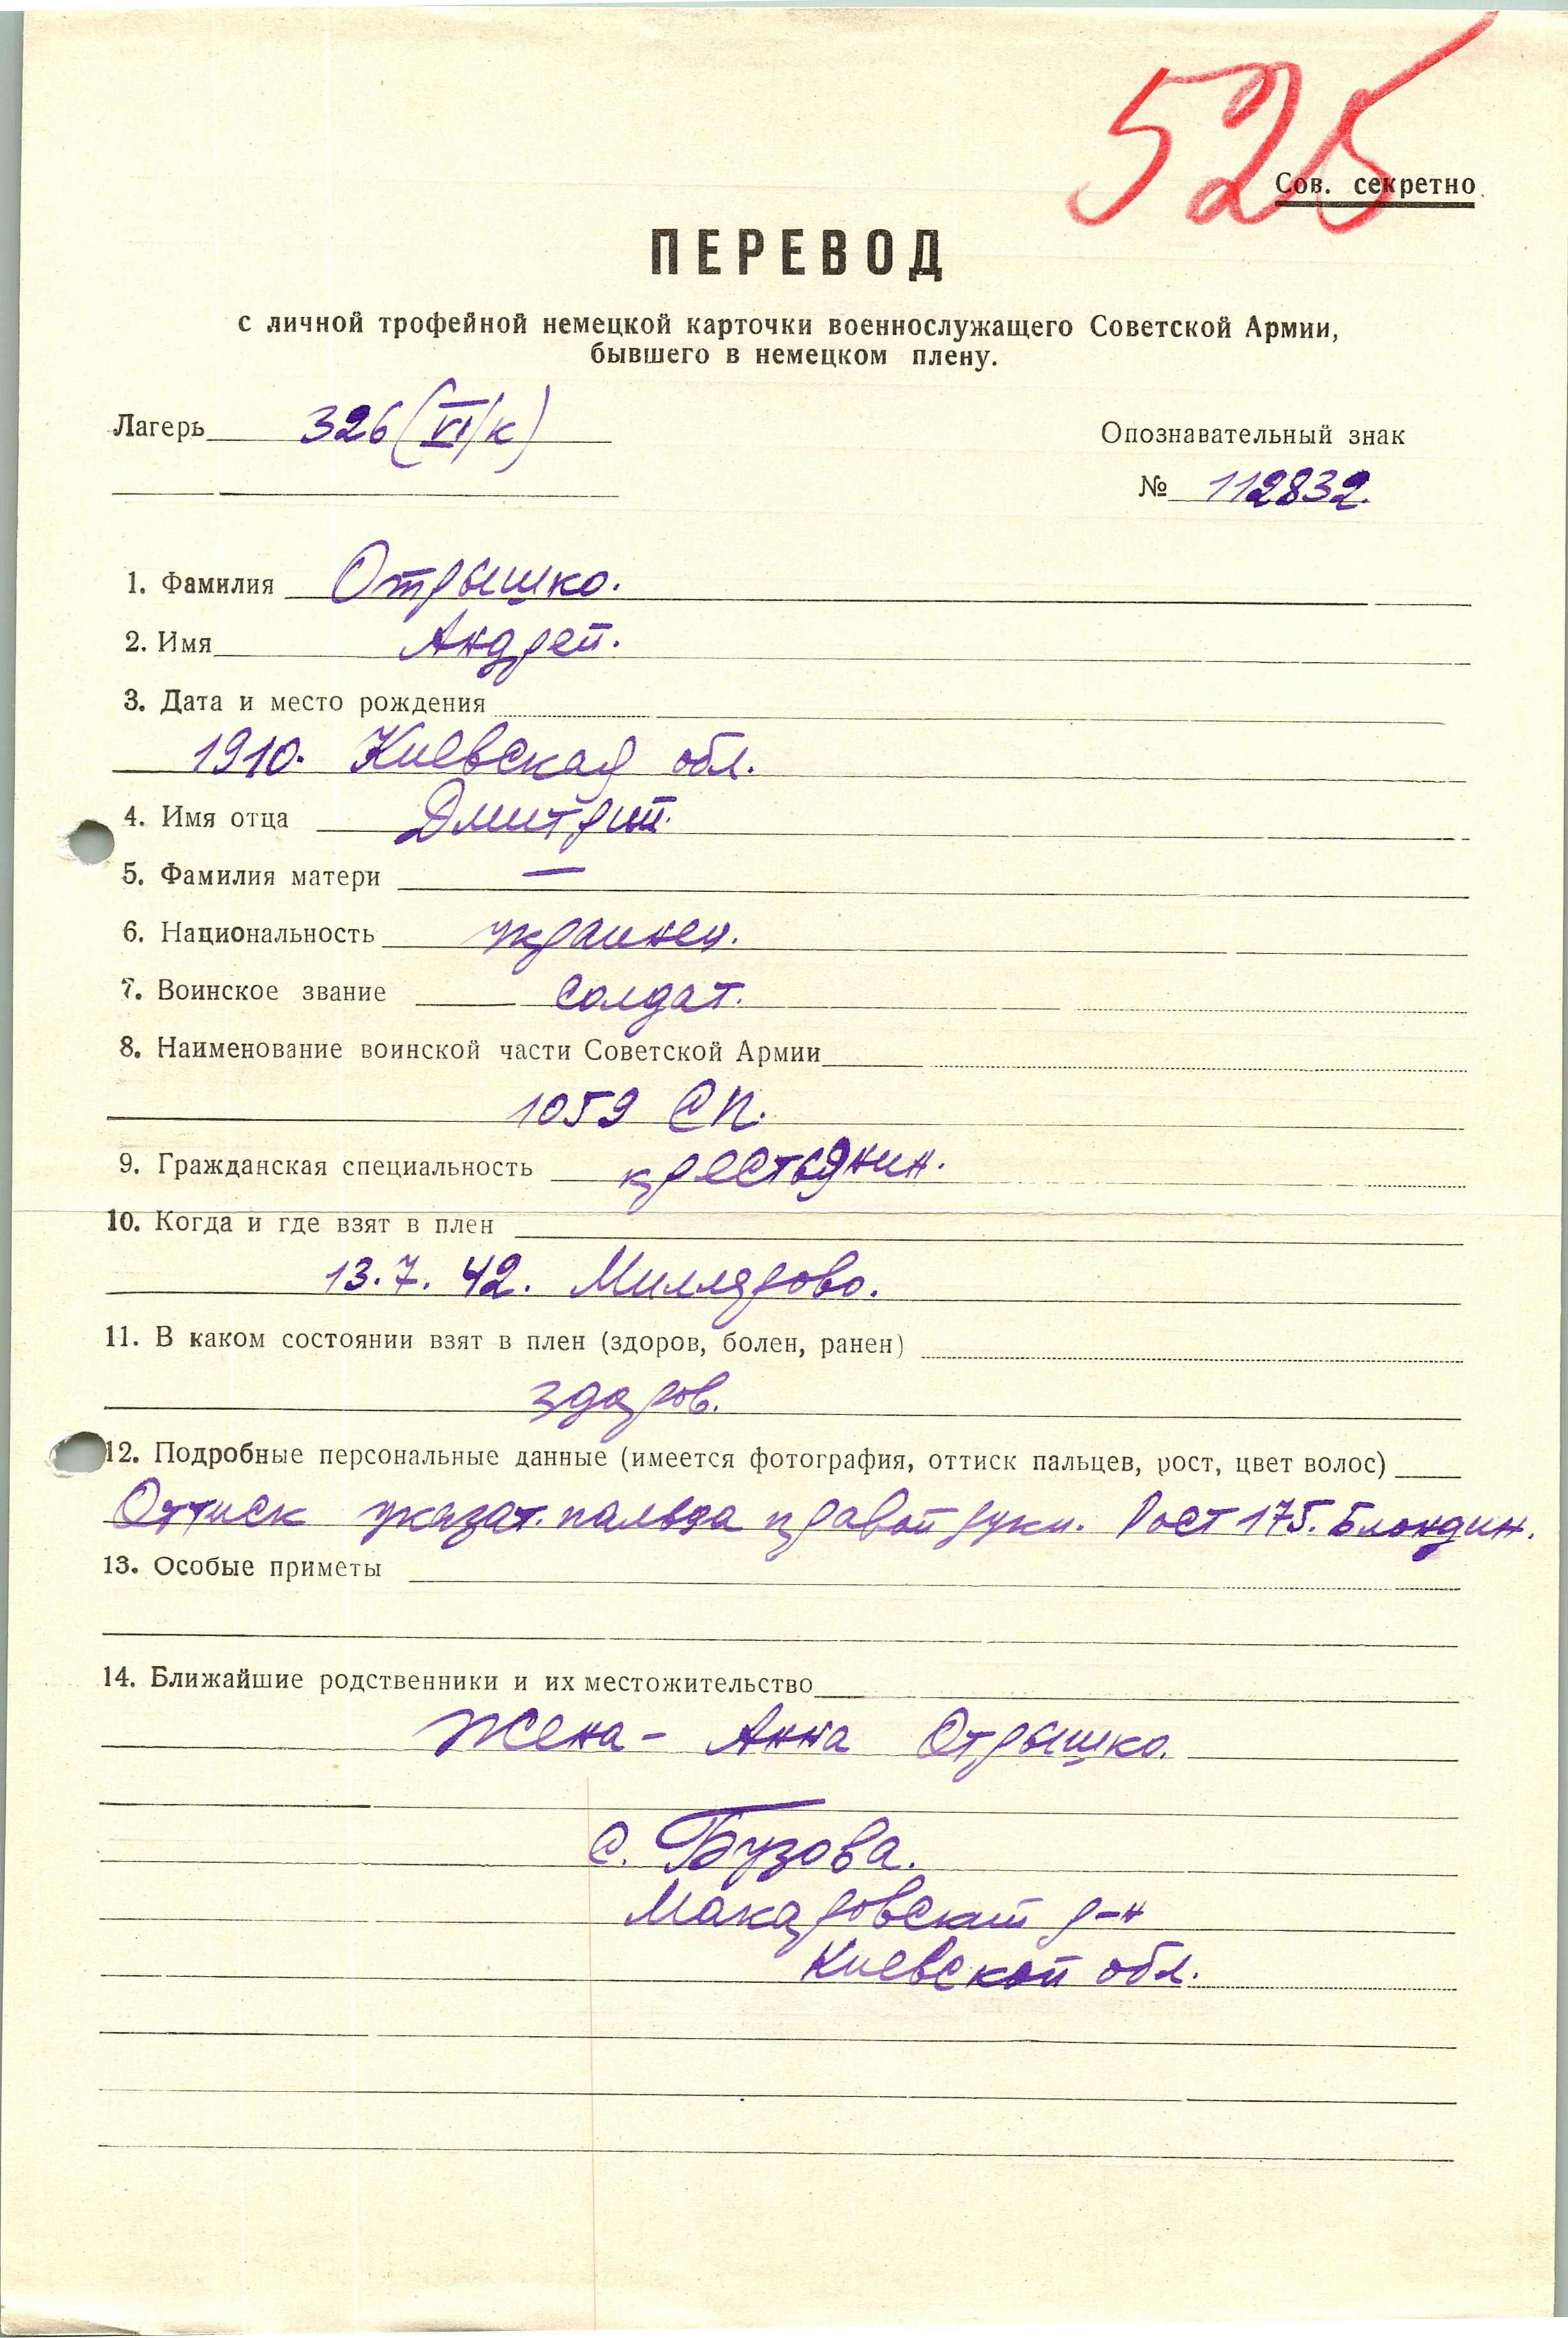 525
Сов. секретно
ПЕРЕВОД
с личной трофейной немецкой карточки военнослужащего Советской Армии,
бывшего в немецком плену.
Лагерь 326 (VI/к)
Опознавательный знак
№ 112832.
1. Фамилия Отрышко.
2. Имя Андрей.
3. Дата и место рождения
1910. Киевская обл.
4. Имя отца Дмитрий.
5. Фамилия матери —
6. Национальность украинец.
7. Воинское звание солдат.
8. Наименование воинской части Советской Армии
1059 СП.
9. Гражданская специальность крестьянин.
10. Когда и где взят в плен
13.7.42. Миллярово.
11. В каком состоянии взят в плен (здоров, болен, ранен)
здоров.
12. Подробные персональные данные (имеется фотография, оттиск пальцев, рост, цвет волос)
Оттиск указат. пальца правой руки. Рост 175. Блондин.
13. Особые приметы
14. Ближайшие родственники и их местожительство
Жена - Анна Отрышко.
с. Бузова.
Макаровский р-н
Киевской обл.